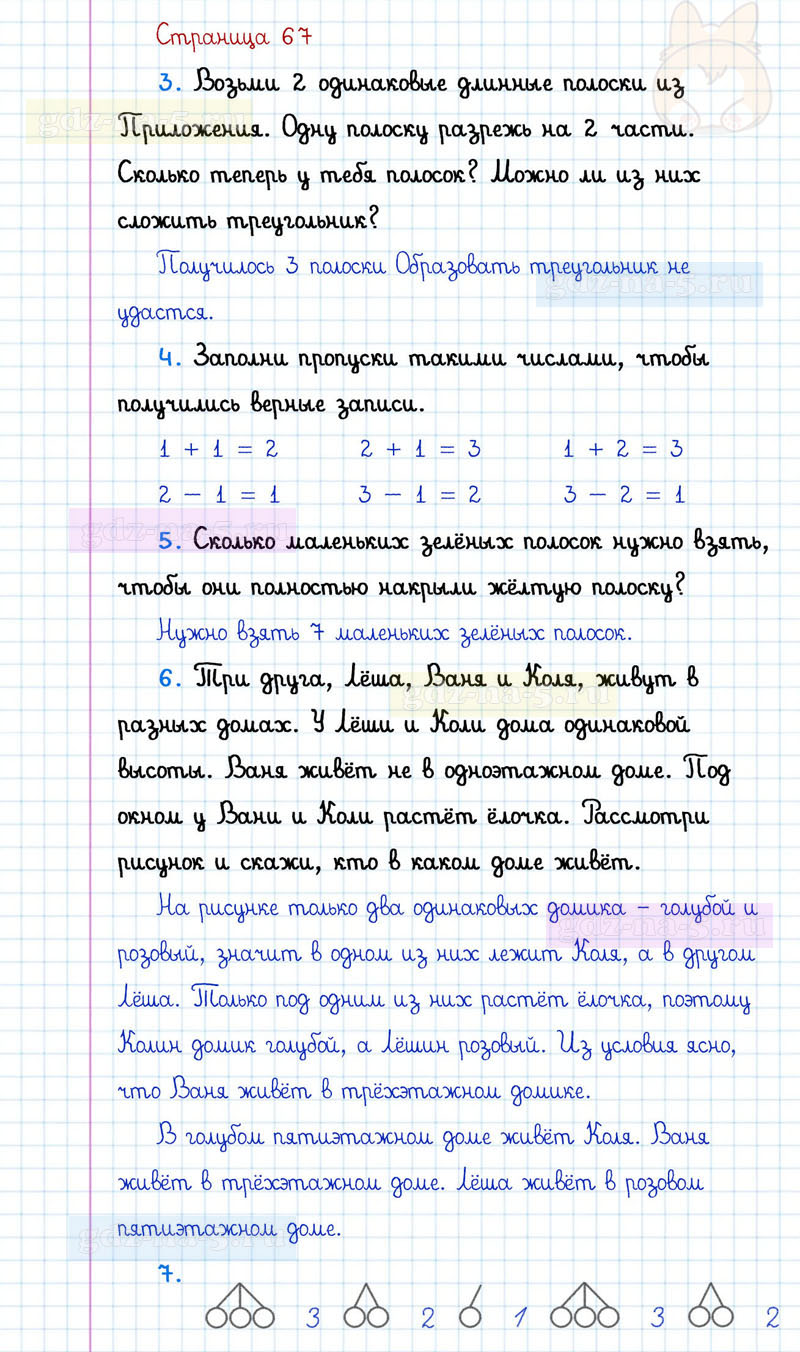 Страница 67
3. Возьми 2 одинаковые длинные полоски из
Приложения. Одну полоску разрежь на 2 части.
Сколько теперь у тебя полосок? Можно ли из них
сложить треугольник?
Получилось 3 полоски Образовать треугольник не
удастся.
4. Заполни пропуски такими числами, чтобы
получились верные записи.
1 + 1 = 2 2 + 1 = 3 1 + 2 = 3
2 − 1 = 1 3 − 1 = 2 3 − 2 = 1
5. Сколько маленьких зелёных полосок нужно взять,
чтобы они полностью накрыли жёлтую полоску?
Нужно взять 7 маленьких зелёных полосок.
6. Три друга, Лёша, Ваня и Коля, живут в
разных домах. У Лёши и Коли дома одинаковой
высоты. Ваня живёт не в одноэтажном доме. Под
окном у Вани и Коли растёт ёлочка. Рассмотри
рисунок и скажи, кто в каком доме живёт.
На рисунке только два одинаковых домика – голубой и
розовый, значит в одном из них лежит Коля, а в другом
Лёша. Только под одним из них растёт ёлочка, поэтому
Колин домик голубой, а Лёшин розовый. Из условия ясно,
что Ваня живёт в трёхэтажном домике.
В голубом пятиэтажном доме живёт Коля. Ваня
живёт в трёхэтажном доме. Лёша живёт в розовом
пятиэтажном доме.
7.
3 2 1 3 2
gdz-na-5.ru
gdz-na-5.ru
gdz-na-5.ru
gdz-na-5.ru
gdz-na-5.ru
gdz-na-5.ru